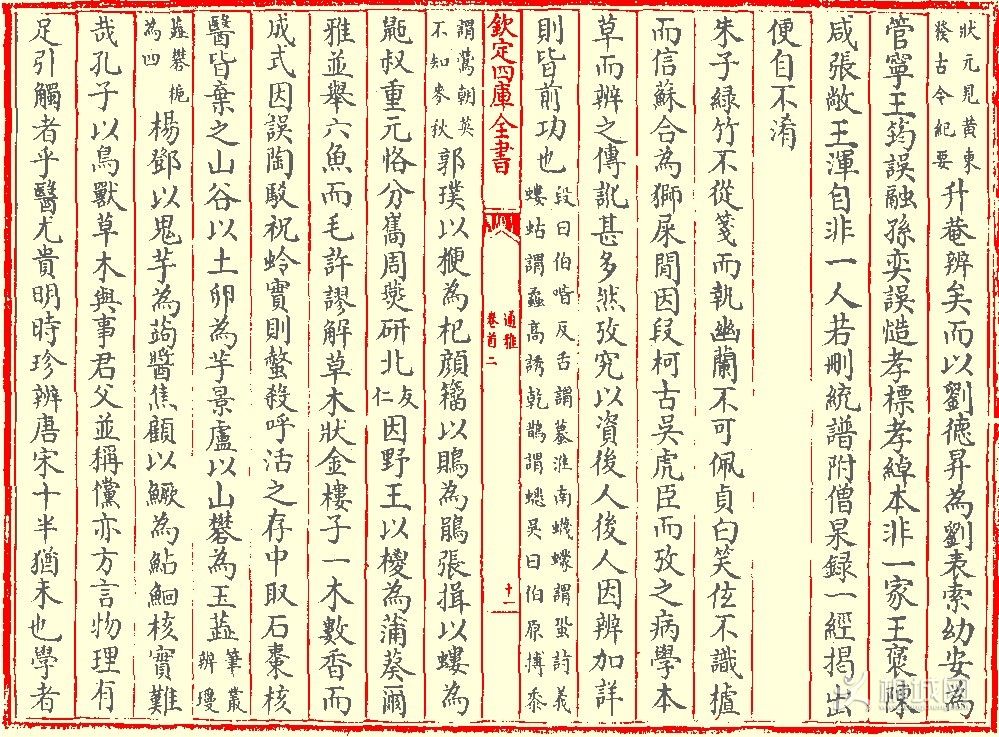 狀元見黄東
發古今紀要
升菴辨矣而以劉德昇為劉表索幼安為
管寧王筠誤融孫奕誤愷孝標孝綽本非一家王褒陳
咸張敞王渾自非一人若刪統譜附僧杲録一經揭出
便自不淆
朱子緑竹不從箋而執幽蘭不可佩貞白笑伭不識櫨
而信蘇合為獅屎閒因段柯古吳虎臣而攷之病學本
草而辨之傳訛甚多然攷究以資後人後人因辨加詳
則皆前功也
段曰伯喈反舌謂蟇淮南蠛蠓謂蛩詩義
螻蛄謂蝱高誘乾鵲謂蟋吳曰伯原摶黍
欽定四庫全書
通雅
卷首二
十一
謂鶯朝英
不知麥秋
郭璞以梗為杞顔籀以鵙為鵑張揖以螻為
鼯叔重元恪分雟周燕研北
友
仁
因野王以椶為蒲葵爾
雅並舉六魚而毛許謬解草木狀金樓子一木數香而
成式因誤陶駁祝蛉實則螫殺呼活之存中取石棗核
醫皆棄之山谷以土卵為芋景盧以山礬為玉蘂
筆叢
辨瓊
蘂礬梔
為四
楊鄧以鬼芋為蒟醬焦顧以鱖為鮎鮰核實難
哉孔子以鳥獸草木與事君父並稱儻亦方言物理有
足引觸者乎醫尤貴明時珍辨唐宋十半猶未也學者